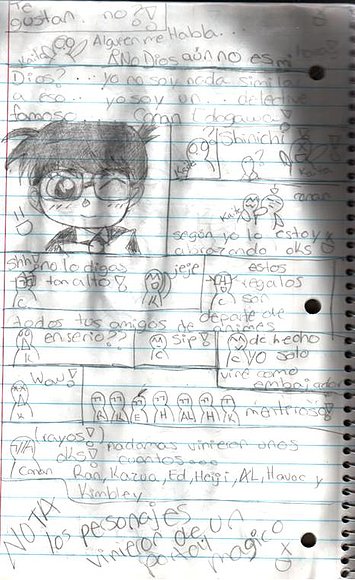 Te
gustan. no
Alguien me Habla...
¡No Dios aún no es mi
Kaita
Dios?... yo no soy nada similar
a eso... yo soy un... detective
famoso Conan Edogawa
Shinichi
conan
según yo lo estoy
abrazando oks
shh! no lo digas
tan alto
jeje
estos
regalos
son
departe de
todos tus amigos de animes
enserio??
sip
de hecho
yo solo
vine como
embajador
Wow!
mentiroso
(rayos)
Conan
nadamas vinieron unos
oks cuantos...
Ran, Kazua, Ed, Heiji, AL, Havoc y
Kimbley
NOTA
los personajes
vinieron de un
portal
magico